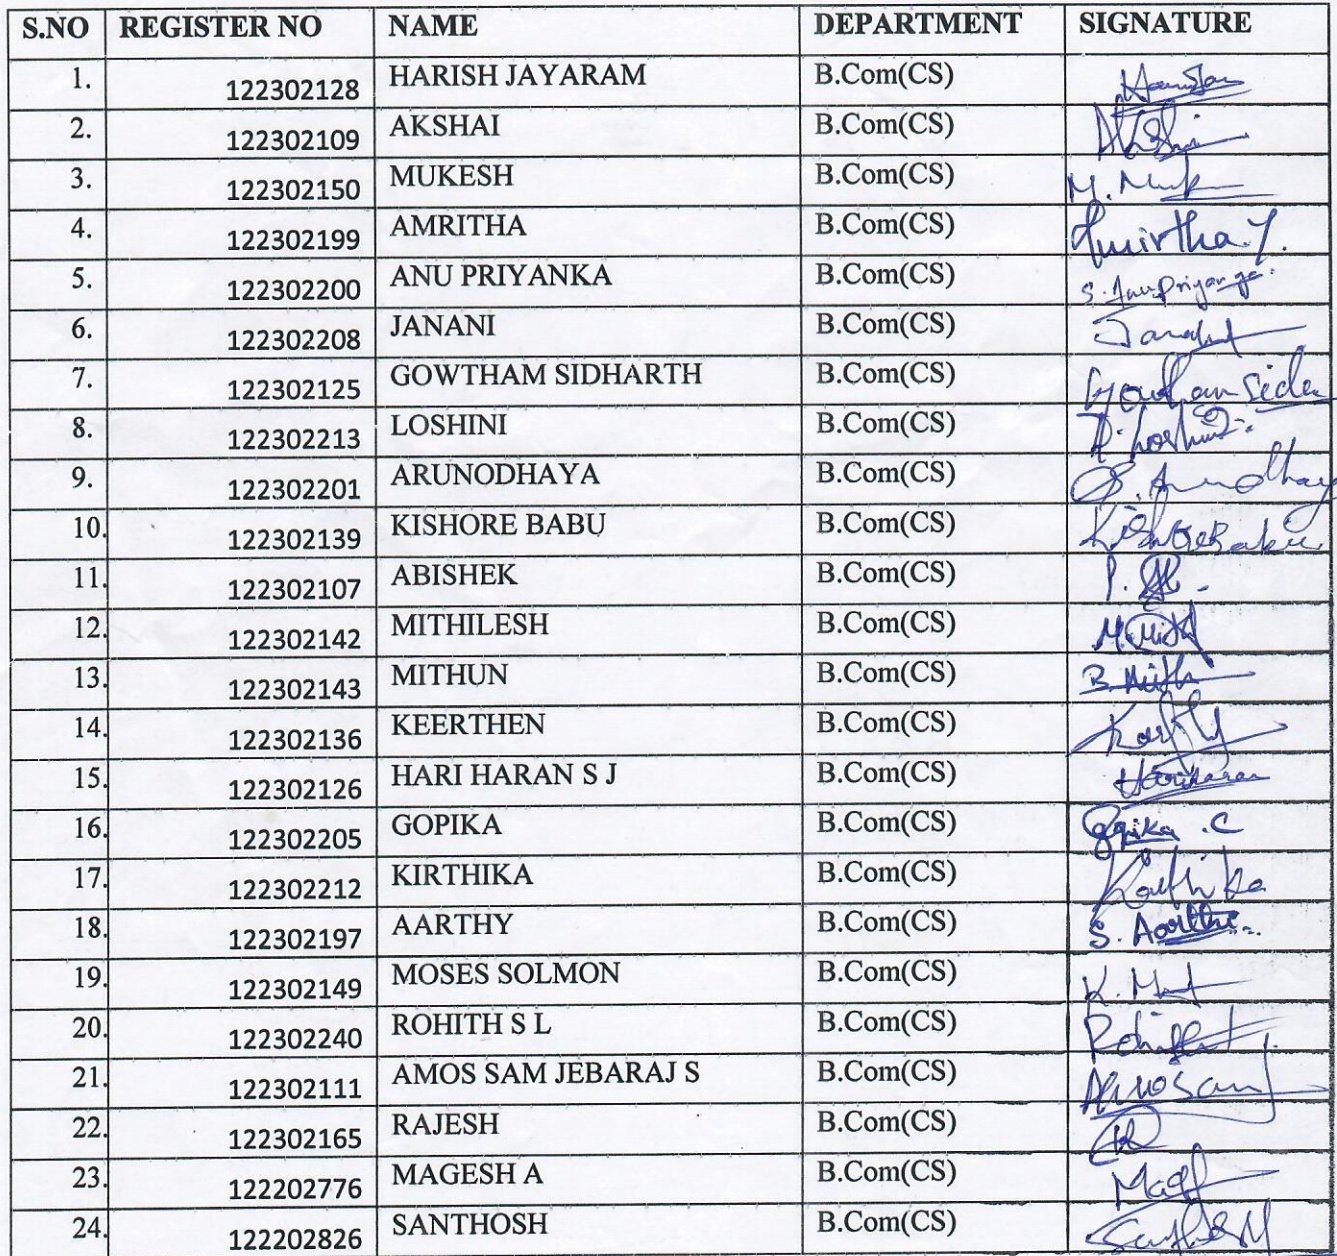 S.NO REGISTER NO NAME DEPARTMENT SIGNATURE
1. 122302128 HARISH JAYARAM B.Com(CS)
2. 122302109 AKSHAI B.Com(CS)
3. 122302150 MUKESH B.Com(CS) M. Muk
4. 122302199 AMRITHA B.Com(CS) Amirtha.Y.
5. 122302200 ANU PRIYANKA B.Com(CS) S. Anupriyanga.
6. 122302208 JANANI B.Com(CS)
7. 122302125 GOWTHAM SIDHARTH B.Com(CS)
8. 122302213 LOSHINI B.Com(CS)
9. 122302201 ARUNODHAYA B.Com(CS)
10. 122302139 KISHORE BABU B.Com(CS) KishoreBabu.
11. 122302107 ABISHEK B.Com(CS)
12. 122302142 MITHILESH B.Com(CS)
13. 122302143 MITHUN B.Com(CS)
14. 122302136 KEERTHEN B.Com(CS)
15. 122302126 HARI HARAN S J B.Com(CS) Hariharan
16. 122302205 GOPIKA B.Com(CS) Gopika .C
17. 122302212 KIRTHIKA B.Com(CS)
18. 122302197 AARTHY B.Com(CS) S. Aarthi
19. 122302149 MOSES SOLMON B.Com(CS)
20. 122302240 ROHITH S L B.Com(CS)
21. 122302111 AMOS SAM JEBARAJ S B.Com(CS)
22. 122302165 RAJESH B.Com(CS)
23. 122202776 MAGESH A B.Com(CS)
24. 122202826 SANTHOSH B.Com(CS)